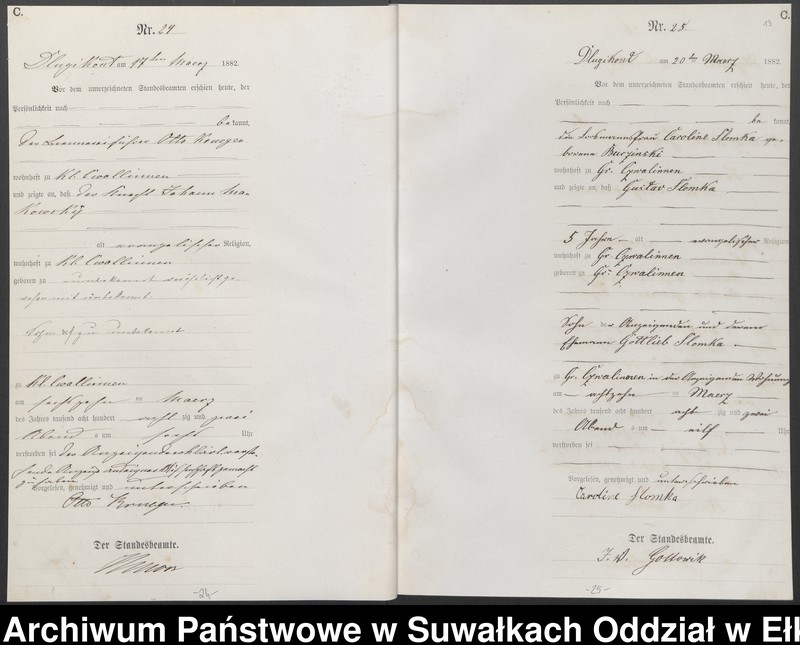 C.
Nr. 24
Dlugikont am 17ten Maerz 1882.
Vor dem unterzeichneten Standesbeamten erschien heute, der
Persönlichkeit nach
bekannt,
der Otto Krueger
wohnhaft zu Kl. Cwallinnen
und zeigte an, daß der Knecht Johann Ma-
kowsky
alt evangelischer Religion,
wohnhaft zu Kl. Cwallinnen
geboren zu unbekannt
mit unbekannt
Sohn des zu unbekannt
zu Kl. Cwallinnen
am sechszehn ten Maerz
des Jahres tausend acht hundert acht zig und zwei
Abend s um sechs Uhr
verstorben sei der Anzeigende erklärt
zu haben
Vorgelesen, genehmigt und unterschrieben
Otto Krueger
Der Standesbeamte.
-24-
C.
Nr. 25
Dlugikont am 20ten Maerz 1882.
Vor dem unterzeichneten Standesbeamten erschien heute, der
Persönlichkeit nach
be kannt,
die Losmannsfrau Caroline Slomka ge-
borene Burzinski
wohnhaft zu Gr. Czwalinnen
und zeigte an, daß Gustav Slomka
5 Jahre alt evangelischer Religion
wohnhaft zu Gr. Czwalinnen
geboren zu Gr. Czwalinnen
Sohn der Anzeigenden und deren
Ehemann Gottlieb Slomka
zu Gr. Czwalinnen in der Anzeigenden Wohnung
am achtzehn ten Maerz
des Jahres tausend acht hundert acht zig und zwei
Abend s um eilf Uhr
verstorben sei
Vorgelesen, genehmigt und unterschrieben
Caroline Slomka
Der Standesbeamte.
I. V. Gollowik
-25-
Archiwum Państwowe w Suwałkach Oddział w Ełk